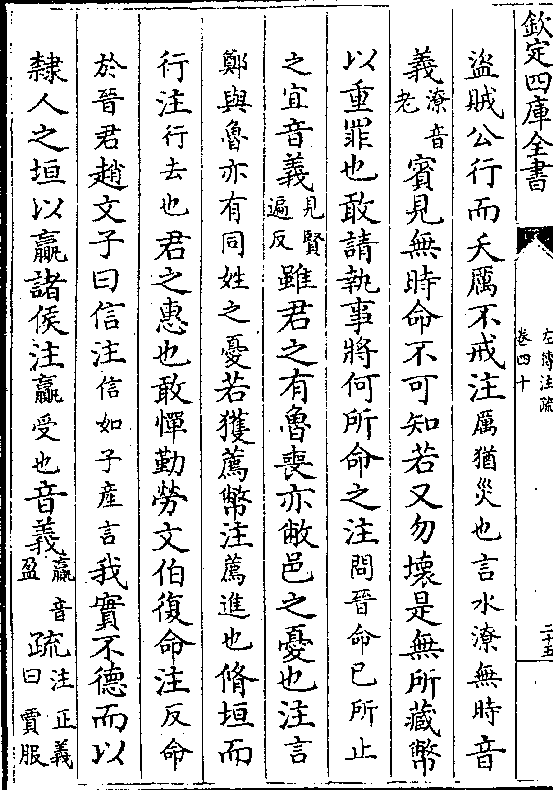 欽定四庫全書
左傳注疏
卷四十
二十五
盜賊公行而夭厲不戒注厲猶災也言水潦無時音
義潦音老賓見無時命不可知若又勿壞是無所藏幣
以重罪也敢請執事將何所命之注問晉命已所止
之宜音義見賢遍反雖君之有魯喪亦敝邑之憂也注言
鄭與魯亦有同姓之憂若獲薦幣注薦進也脩垣而
行注行去也君之惠也敢憚勤勞文伯復命注反命
於晉君趙文子曰信注信如子產言我實不德而以
隸人之垣以贏諸侯注贏受也音義贏音盈疏注正義曰賈服